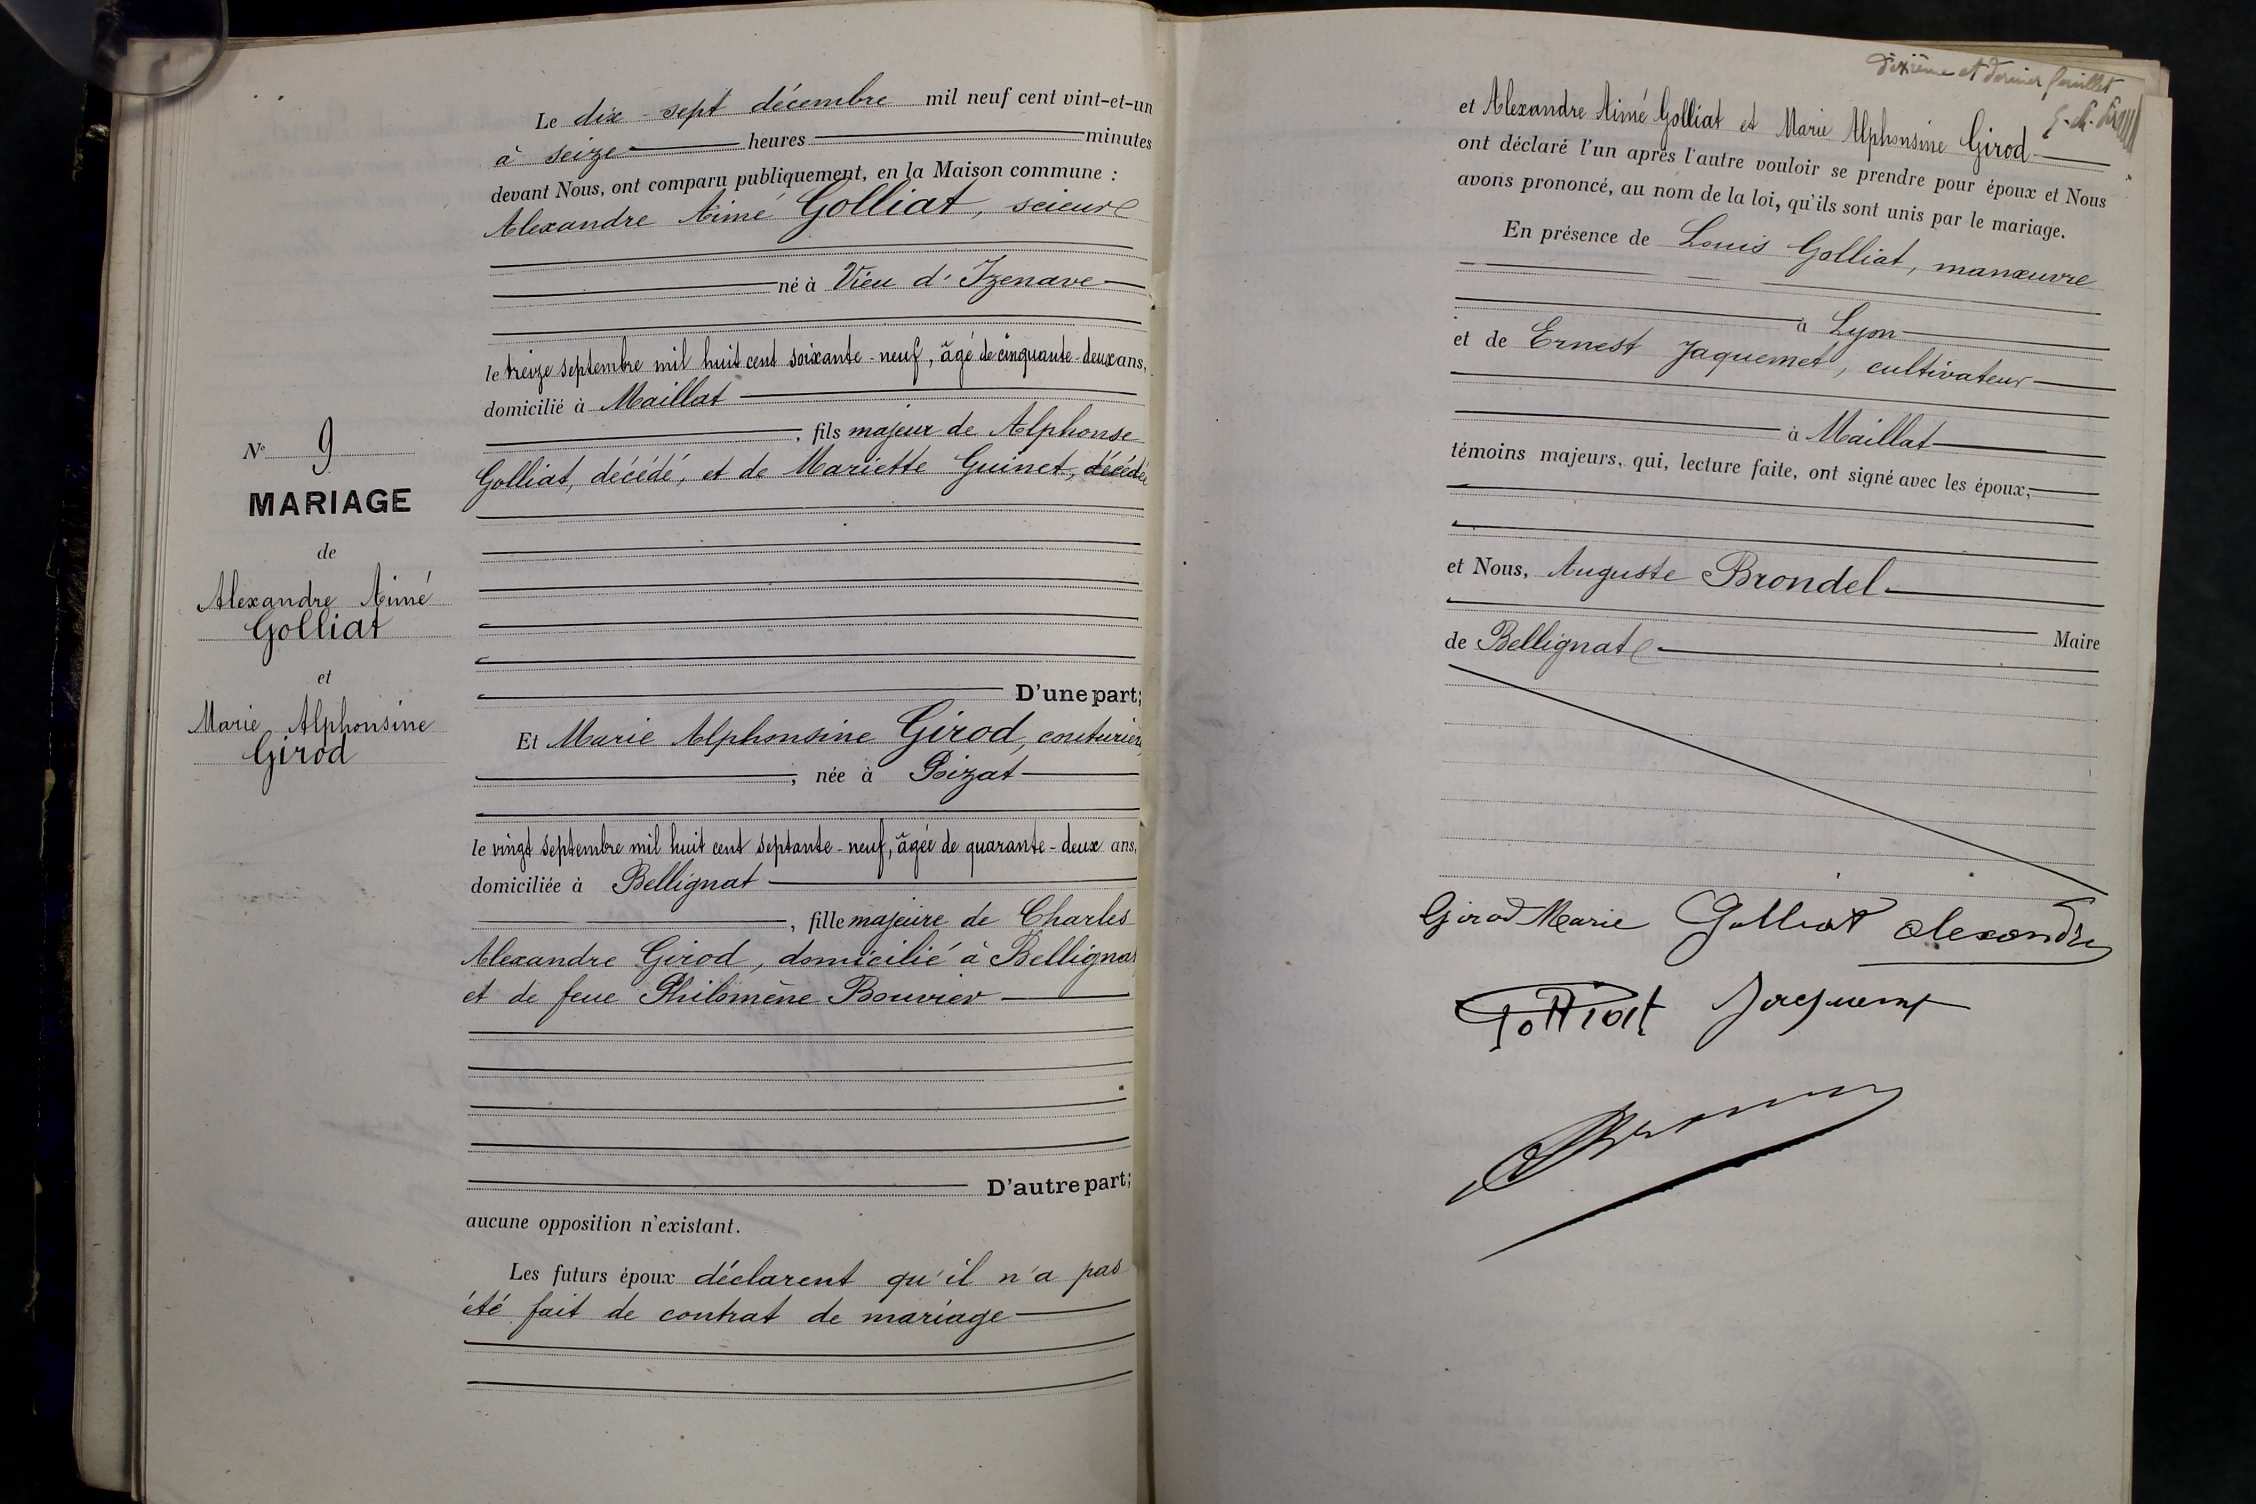 Le dix-sept décembre mil neuf cent vint-et-un
à seize heures minutes
devant Nous, ont comparu publiquement, en la Maison commune :
Alexandre Aimé Golliat, scieur
né à Vieu d'Izenave
le treize septembre mil huit cent soixante-neuf, âgé de cinquante-deux ans,
domicilié à Maillat
, fils majeur de Alphonse
Golliat, décédé, et de Mariette Guinet, décédée
D'une part;
Et Marie Alphonsine Girod, couturière
, née à Pizat
le vingt septembre mil huit cent septante-neuf, âgée de quarante-deux ans,
domiciliée à Bellignat
, fille majeure de Charles
Alexandre Girod, domicilié à Bellignat
et de feue Philomène Bouvier
D'autre part;
aucune opposition n'existant.
Les futurs époux déclarent qu'il n'a pas
été fait de contrat de mariage
N° 9
MARIAGE
de
Alexandre Aimé
Golliat
et
Marie Alphonsine
Girod
dixième et dernier feuillet
et Alexandre Aimé Golliat et Marie Alphonsine Girod
ont déclaré l'un après l'autre vouloir se prendre pour époux et Nous
avons prononcé, au nom de la loi, qu'ils sont unis par le mariage.
En présence de Louis Golliat, manœuvre
à Lyon
et de Ernest Jaquemet, cultivateur
à Maillat
témoins majeurs, qui, lecture faite, ont signé avec les époux,
et Nous, Auguste Brondel
Maire
de Bellignat
Girod Marie Golliat Alexandre
Golliat Jacquemet